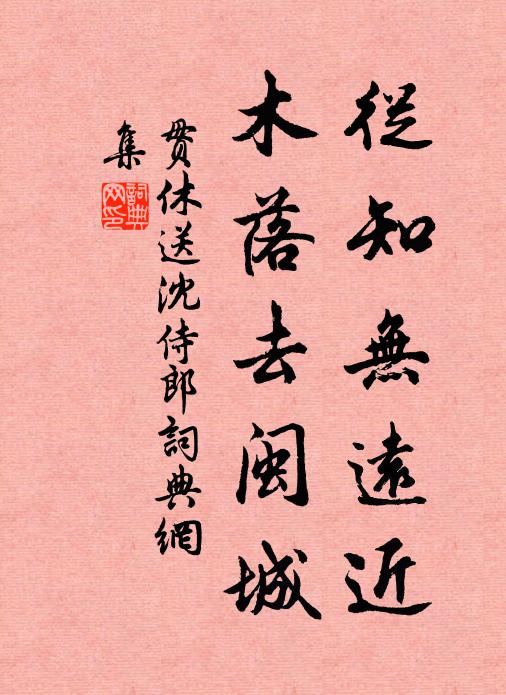 從知無遠近
木落去閩城
貫休送沈侍郎詞典網
集
詞典網印